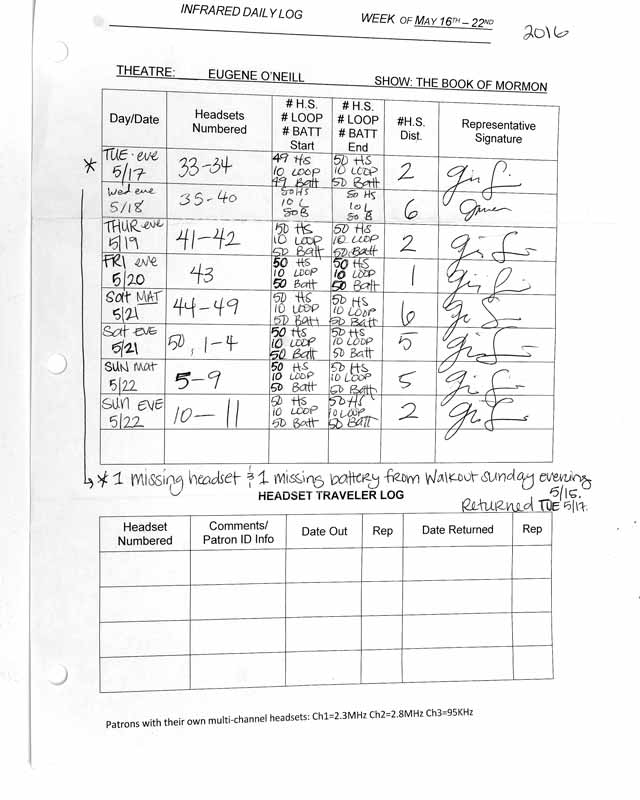 INFRARED DAILY LOG WEEK OF MAY 16TH – 22ND
2016
THEATRE: EUGENE O'NEILL SHOW: THE BOOK OF MORMON
Day/Date Headsets Numbered # H.S. # LOOP # BATT Start # H.S. # LOOP # BATT End #H.S. Dist. Representative Signature
* TUE · eve 5/17 33-34 49 HS 10 LOOP 49 Batt 50 HS 10 LOOP 50 Batt 2
Wed eve 5/18 35-40 50 HS 10 L 50 B 50 HS 10 L 50 B 6
THUR eve 5/19 41-42 50 HS 10 LOOP 50 Batt 50 HS 10 LOOP 50 Batt 2
FRI eve 5/20 43 50 HS 10 LOOP 50 Batt 50 HS 10 LOOP 50 Batt 1
Sat MAT 5/21 44-49 50 HS 10 LOOP 50 Batt 50 HS 10 LOOP 50 Batt 6
Sat EVE 5/21 50, 1-4 50 HS 10 LOOP 50 Batt 50 HS 10 LOOP 50 Batt 5
SUN mat 5/22 5-9 50 HS 10 LOOP 50 Batt 50 HS 10 LOOP 50 Batt 5
SUN EVE 5/22 10-11 50 HS 10 LOOP 50 Batt 50 HS 10 LOOP 50 Batt 2
* 1 missing headset & 1 missing battery from Walkout Sunday evening
5/15.
HEADSET TRAVELER LOG Returned TUE 5/17.
Headset Numbered Comments/ Patron ID Info Date Out Rep Date Returned Rep
Patrons with their own multi-channel headsets: Ch1=2.3MHz Ch2=2.8MHz Ch3=95KHz